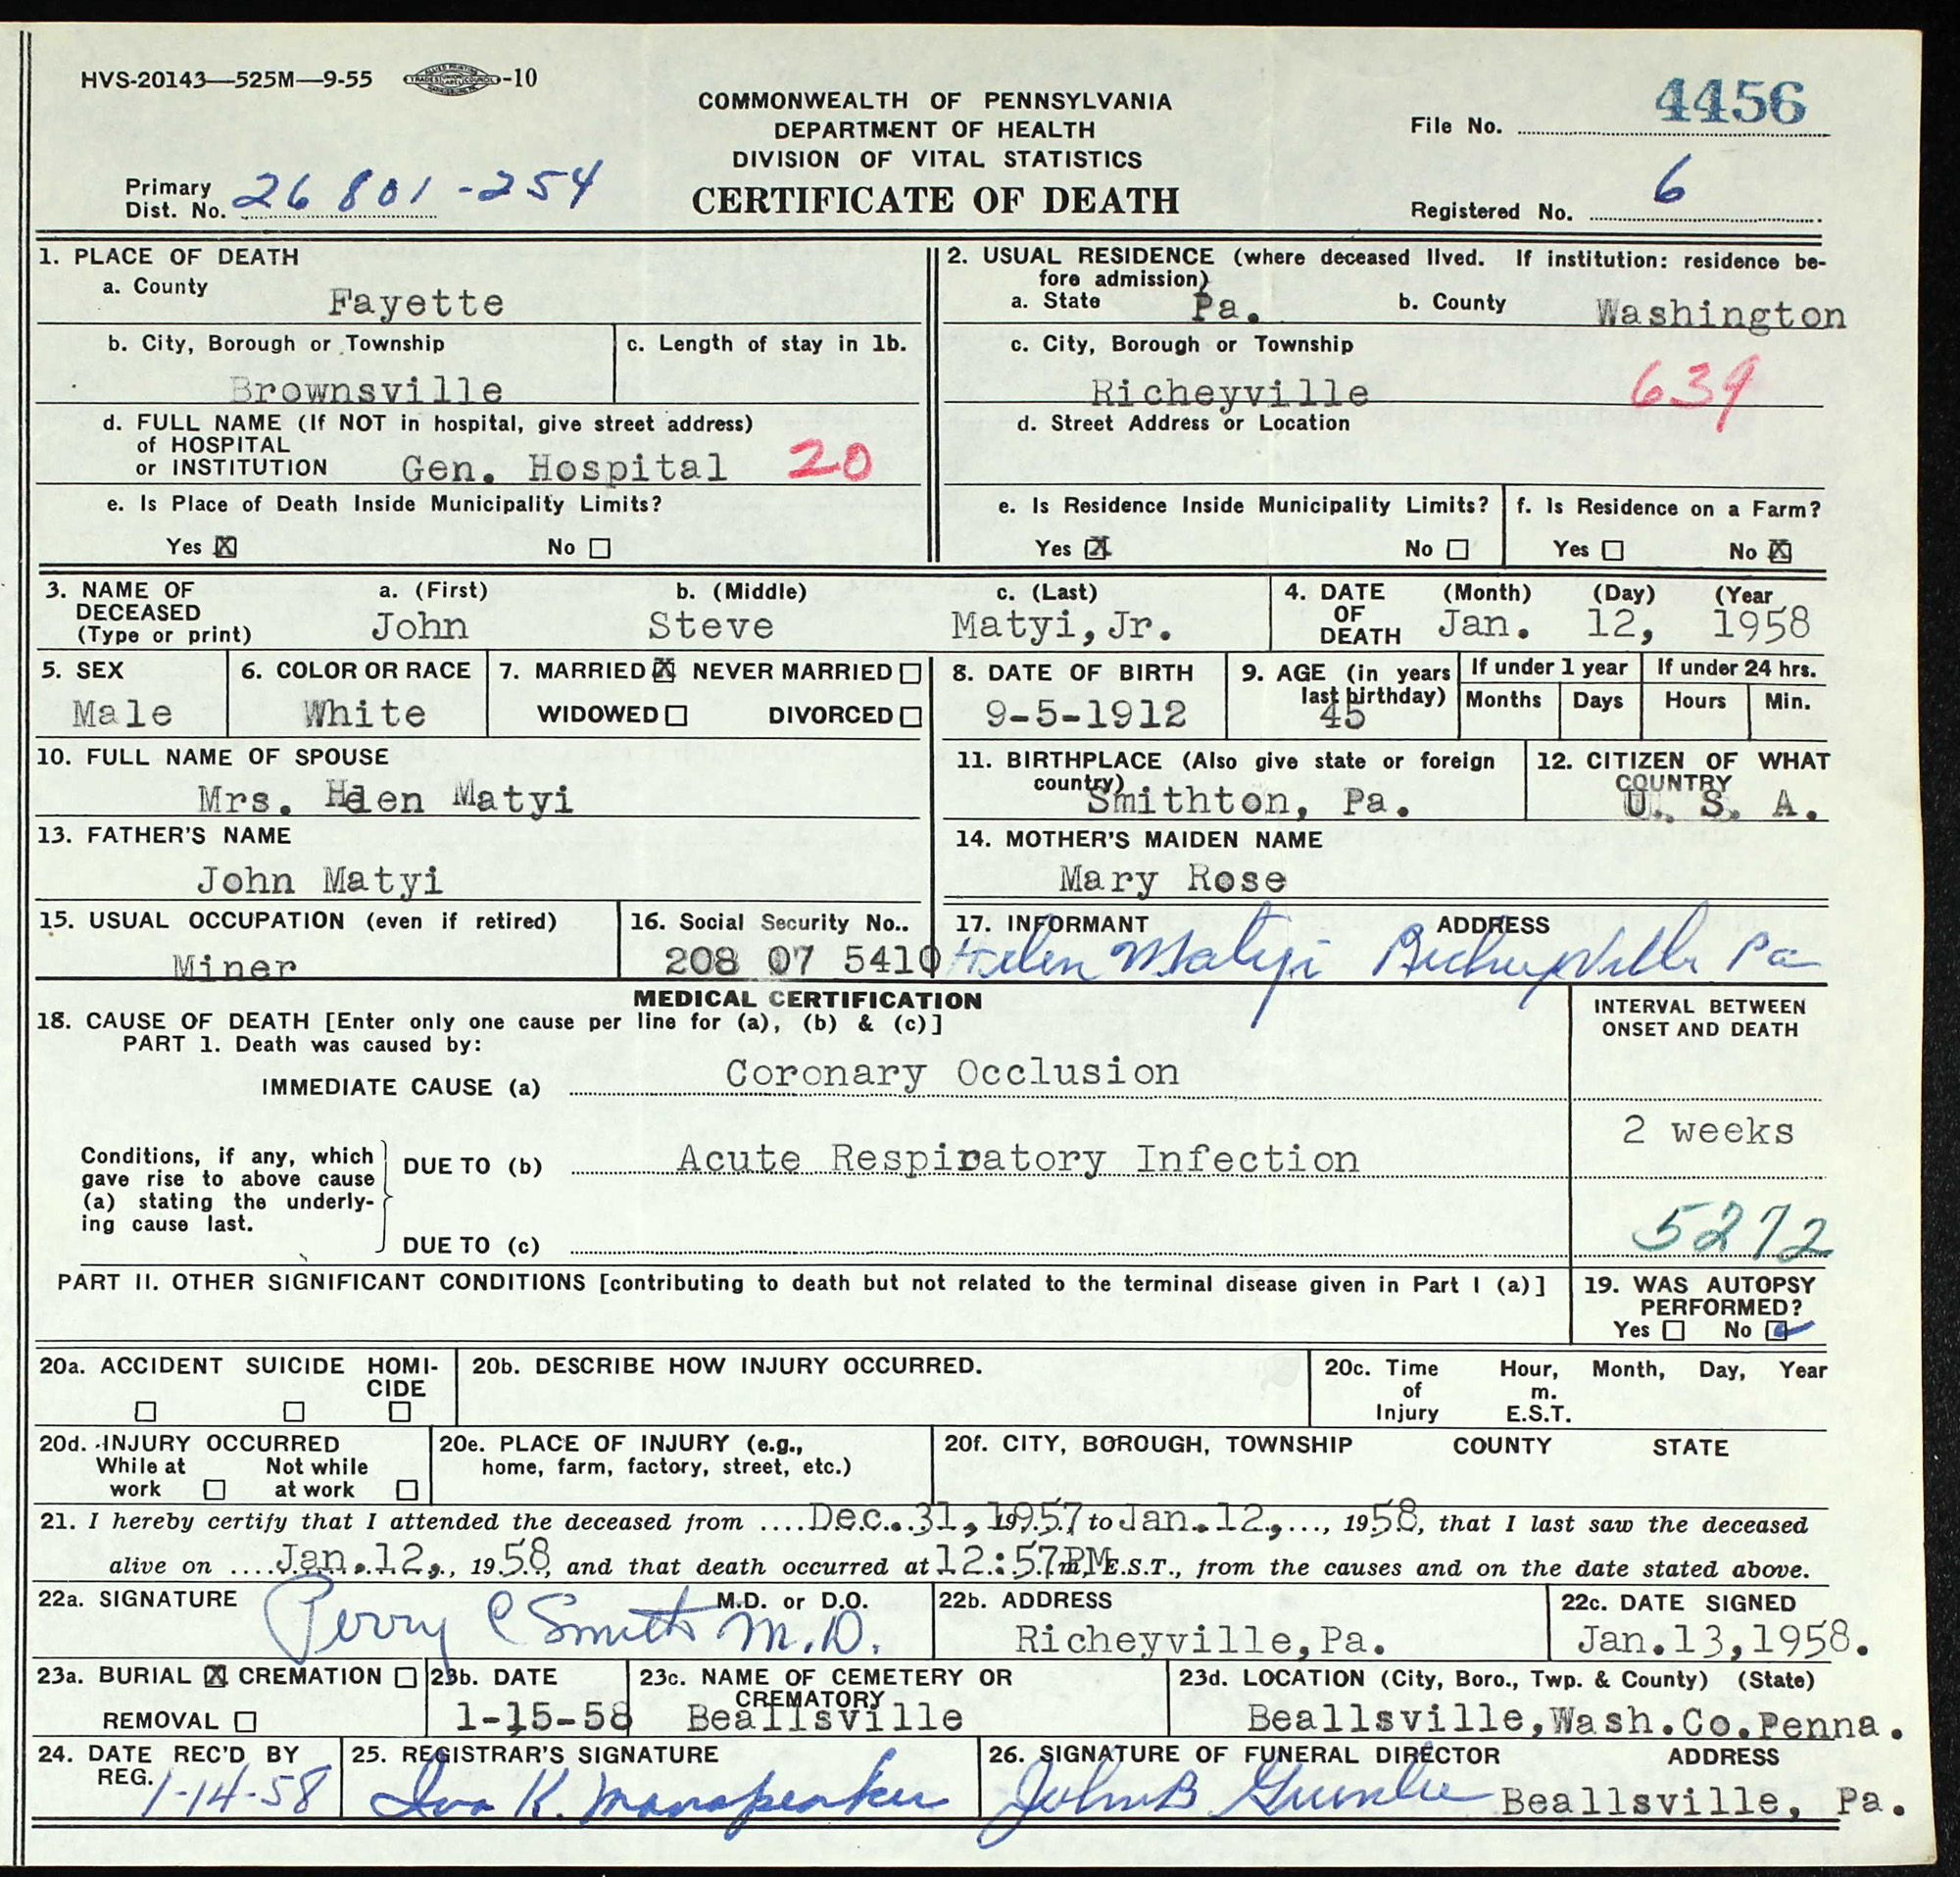 HVS-20143—525M—9-55 -10
COMMONWEALTH OF PENNSYLVANIA
DEPARTMENT OF HEALTH
DIVISION OF VITAL STATISTICS
CERTIFICATE OF DEATH
File No. 4456
Primary
Dist. No. 26 801-254
Registered No. 6
1. PLACE OF DEATH
a. County Fayette
b. City, Borough or Township Brownsville
c. Length of stay in 1b.
d. FULL NAME (If NOT in hospital, give street address)
of HOSPITAL
or INSTITUTION Gen. Hospital 20
e. Is Place of Death Inside Municipality Limits?
Yes X No
2. USUAL RESIDENCE (where deceased lived. If institution: residence be-
fore admission)
a. State Pa. b. County Washington
c. City, Borough or Township
Richeyville 639
d. Street Address or Location
e. Is Residence Inside Municipality Limits? f. Is Residence on a Farm?
Yes X No Yes No X
3. NAME OF DECEASED (Type or print)
a. (First) b. (Middle) c. (Last)
John Steve Matyi, Jr.
4. DATE OF DEATH (Month) (Day) (Year
Jan. 12, 1958
5. SEX Male
6. COLOR OR RACE White
7. MARRIED X NEVER MARRIED
WIDOWED DIVORCED
8. DATE OF BIRTH 9-5-1912
9. AGE (in years last birthday) 45
If under 1 year Months Days
If under 24 hrs. Hours Min.
10. FULL NAME OF SPOUSE
Mrs. Helen Matyi
11. BIRTHPLACE (Also give state or foreign
country) Smithton, Pa.
12. CITIZEN OF WHAT
COUNTRY U. S. A.
13. FATHER'S NAME
John Matyi
14. MOTHER'S MAIDEN NAME
Mary Rose
15. USUAL OCCUPATION (even if retired)
Miner
16. Social Security No..
208 07 5410
17. INFORMANT ADDRESS
Helen Matyi Richeyville Pa
MEDICAL CERTIFICATION
18. CAUSE OF DEATH [Enter only one cause per line for (a), (b) & (c)]
PART 1. Death was caused by:
INTERVAL BETWEEN
ONSET AND DEATH
IMMEDIATE CAUSE (a) Coronary Occlusion
2 weeks
Conditions, if any, which
gave rise to above cause
(a) stating the underly-
ing cause last.
DUE TO (b) Acute Respiratory Infection
5272
DUE TO (c)
PART II. OTHER SIGNIFICANT CONDITIONS [contributing to death but not related to the terminal disease given in Part I (a)]
19. WAS AUTOPSY
PERFORMED?
Yes No
20a. ACCIDENT SUICIDE HOMI-
CIDE
20b. DESCRIBE HOW INJURY OCCURRED.
20c. Time of Injury Hour, Month, Day, Year
m.
E.S.T.
20d. INJURY OCCURRED
While at work Not while at work
20e. PLACE OF INJURY (e.g.,
home, farm, factory, street, etc.)
20f. CITY, BOROUGH, TOWNSHIP COUNTY STATE
21. I hereby certify that I attended the deceased from ....Dec. 31, 1957 to Jan. 12, ..., 1958, that I last saw the deceased
alive on ....Jan. 12, , 1958, and that death occurred at 12:57 PM E.S.T., from the causes and on the date stated above.
22a. SIGNATURE M.D. or D.O.
Perry C Smith M.D.
22b. ADDRESS
Richeyville, Pa.
22c. DATE SIGNED
Jan. 13, 1958.
23a. BURIAL X CREMATION
REMOVAL
23b. DATE
1-15-58
23c. NAME OF CEMETERY OR
CREMATORY
Beallsville
23d. LOCATION (City, Boro., Twp. & County) (State)
Beallsville, Wash. Co. Penna.
24. DATE REC'D BY
REG. 1-14-58
25. REGISTRAR'S SIGNATURE
Iva K.
26. SIGNATURE OF FUNERAL DIRECTOR ADDRESS
John B Beallsville, Pa.